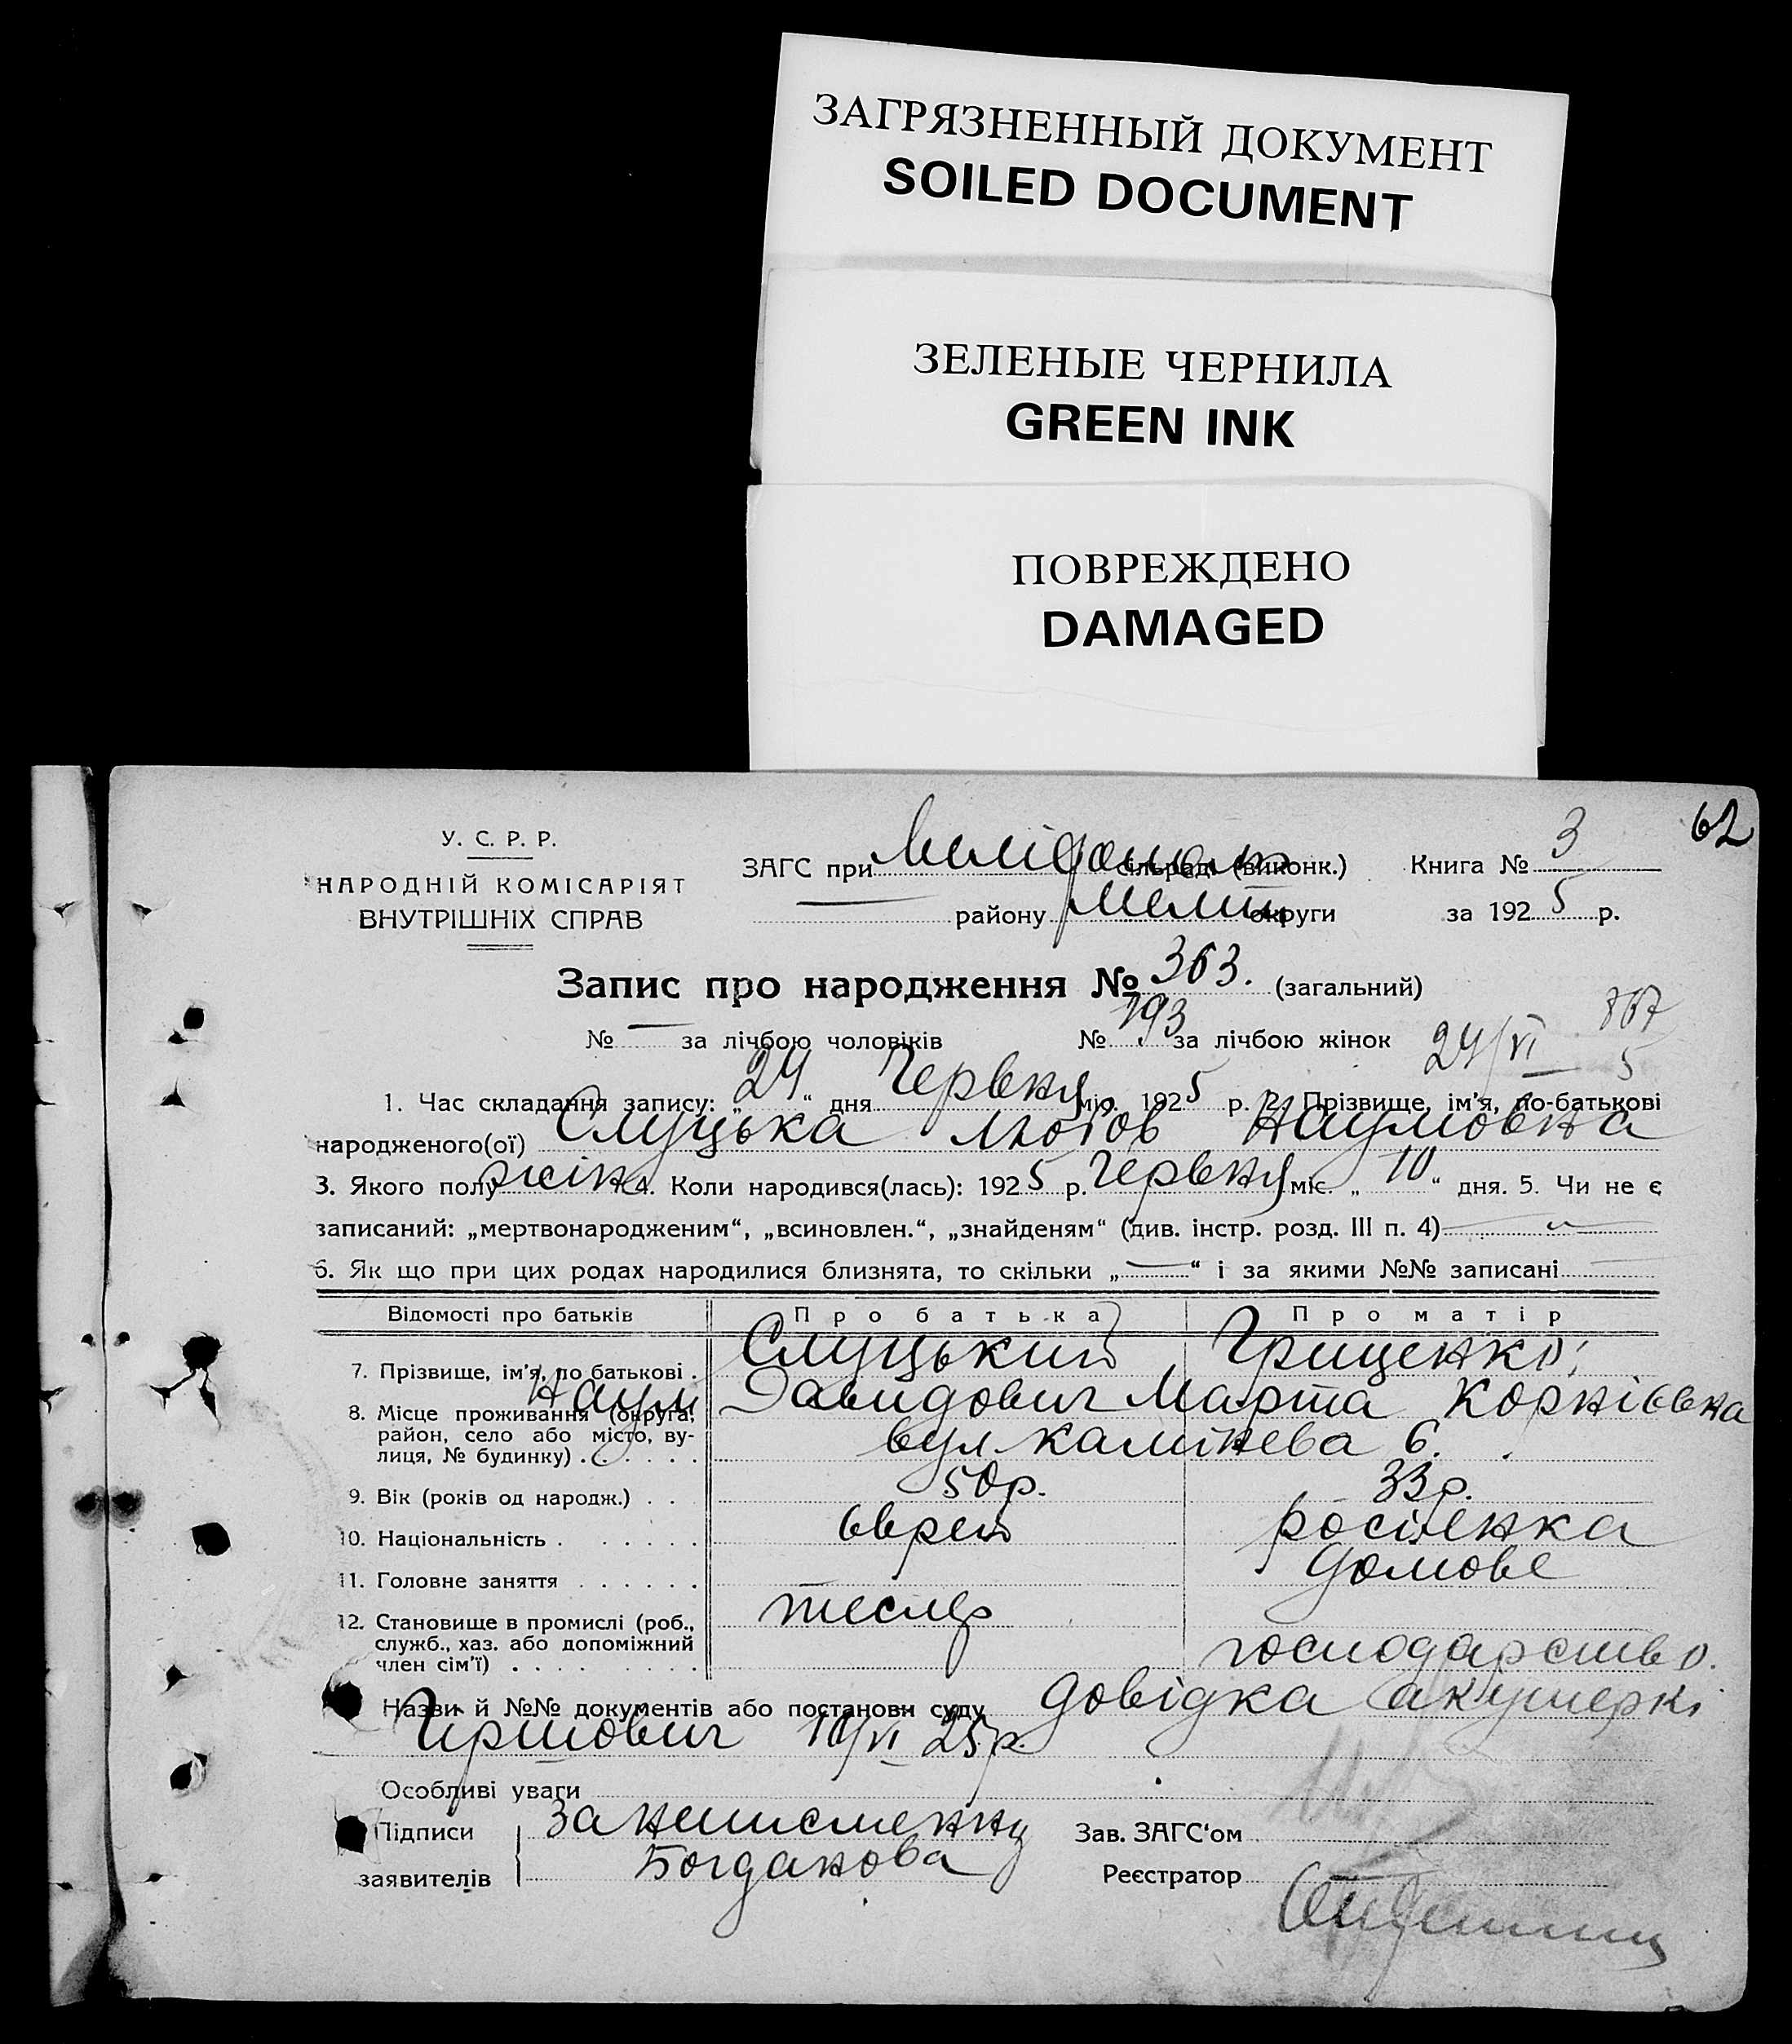 ЗАГРЯЗНЕННЫЙ ДОКУМЕНТ
SOILED DOCUMENT
ЗЕЛЕНЫЕ ЧЕРНИЛА
GREEN INK
ПОВРЕЖДЕНО
DAMAGED
62
У. С. Р. Р.
НАРОДНІЙ КОМІСАРІЯТ
ВНУТРІШНІХ СПРАВ
ЗАГС при сільраді (виконк.) Книга № 3
— району Меліт округи за 1925 р.
Запис про народження № 363. (загальний)
№ — за лічбою чоловіків № 193 за лічбою жінок 24/VI
5
1. Час складання запису: „24“ дня Червня міс. 1925 р. 2. Прізвище, ім'я, по-батькові
народженого(ої) Слуцька Любов Наумовна
3. Якого полу жін 4. Коли народився(лась): 1925 р. Червня міс. „10“ дня. 5. Чи не є
записаний: „мертвонародженим“, „всиновлен.“, „знайденям“ (див. інстр. розд. III п. 4) —
6. Як що при цих родах народилися близнята, то скільки „—“ і за якими №№ записані —
Відомості про батьків Про батька Про матір
7. Прізвище, ім'я, по батькові . Слуцький Гриценко,
Наум Давидович Марта Корнієвна
8. Місце проживання (округа,
район, село або місто, ву-
лиця, № будинку) . . . . . . вул Калінева 6.
9. Вік (років од народж.) . . 50р. 33р.
10. Національність . . . . . . єврей росіенка
11. Головне заняття . . . . . . домове
12. Становище в промислі (роб., тесляр
служб., хаз. або допоміжний
член сім'ї) . . . . . . . . господарство.
Назви й №№ документів або постанови суду довідка акушеркі
Гіршович 10/VI 25р.
Особливі уваги
Підписи За неписменну Зав. ЗАГС'ом
заявителів Богданова Реєстратор